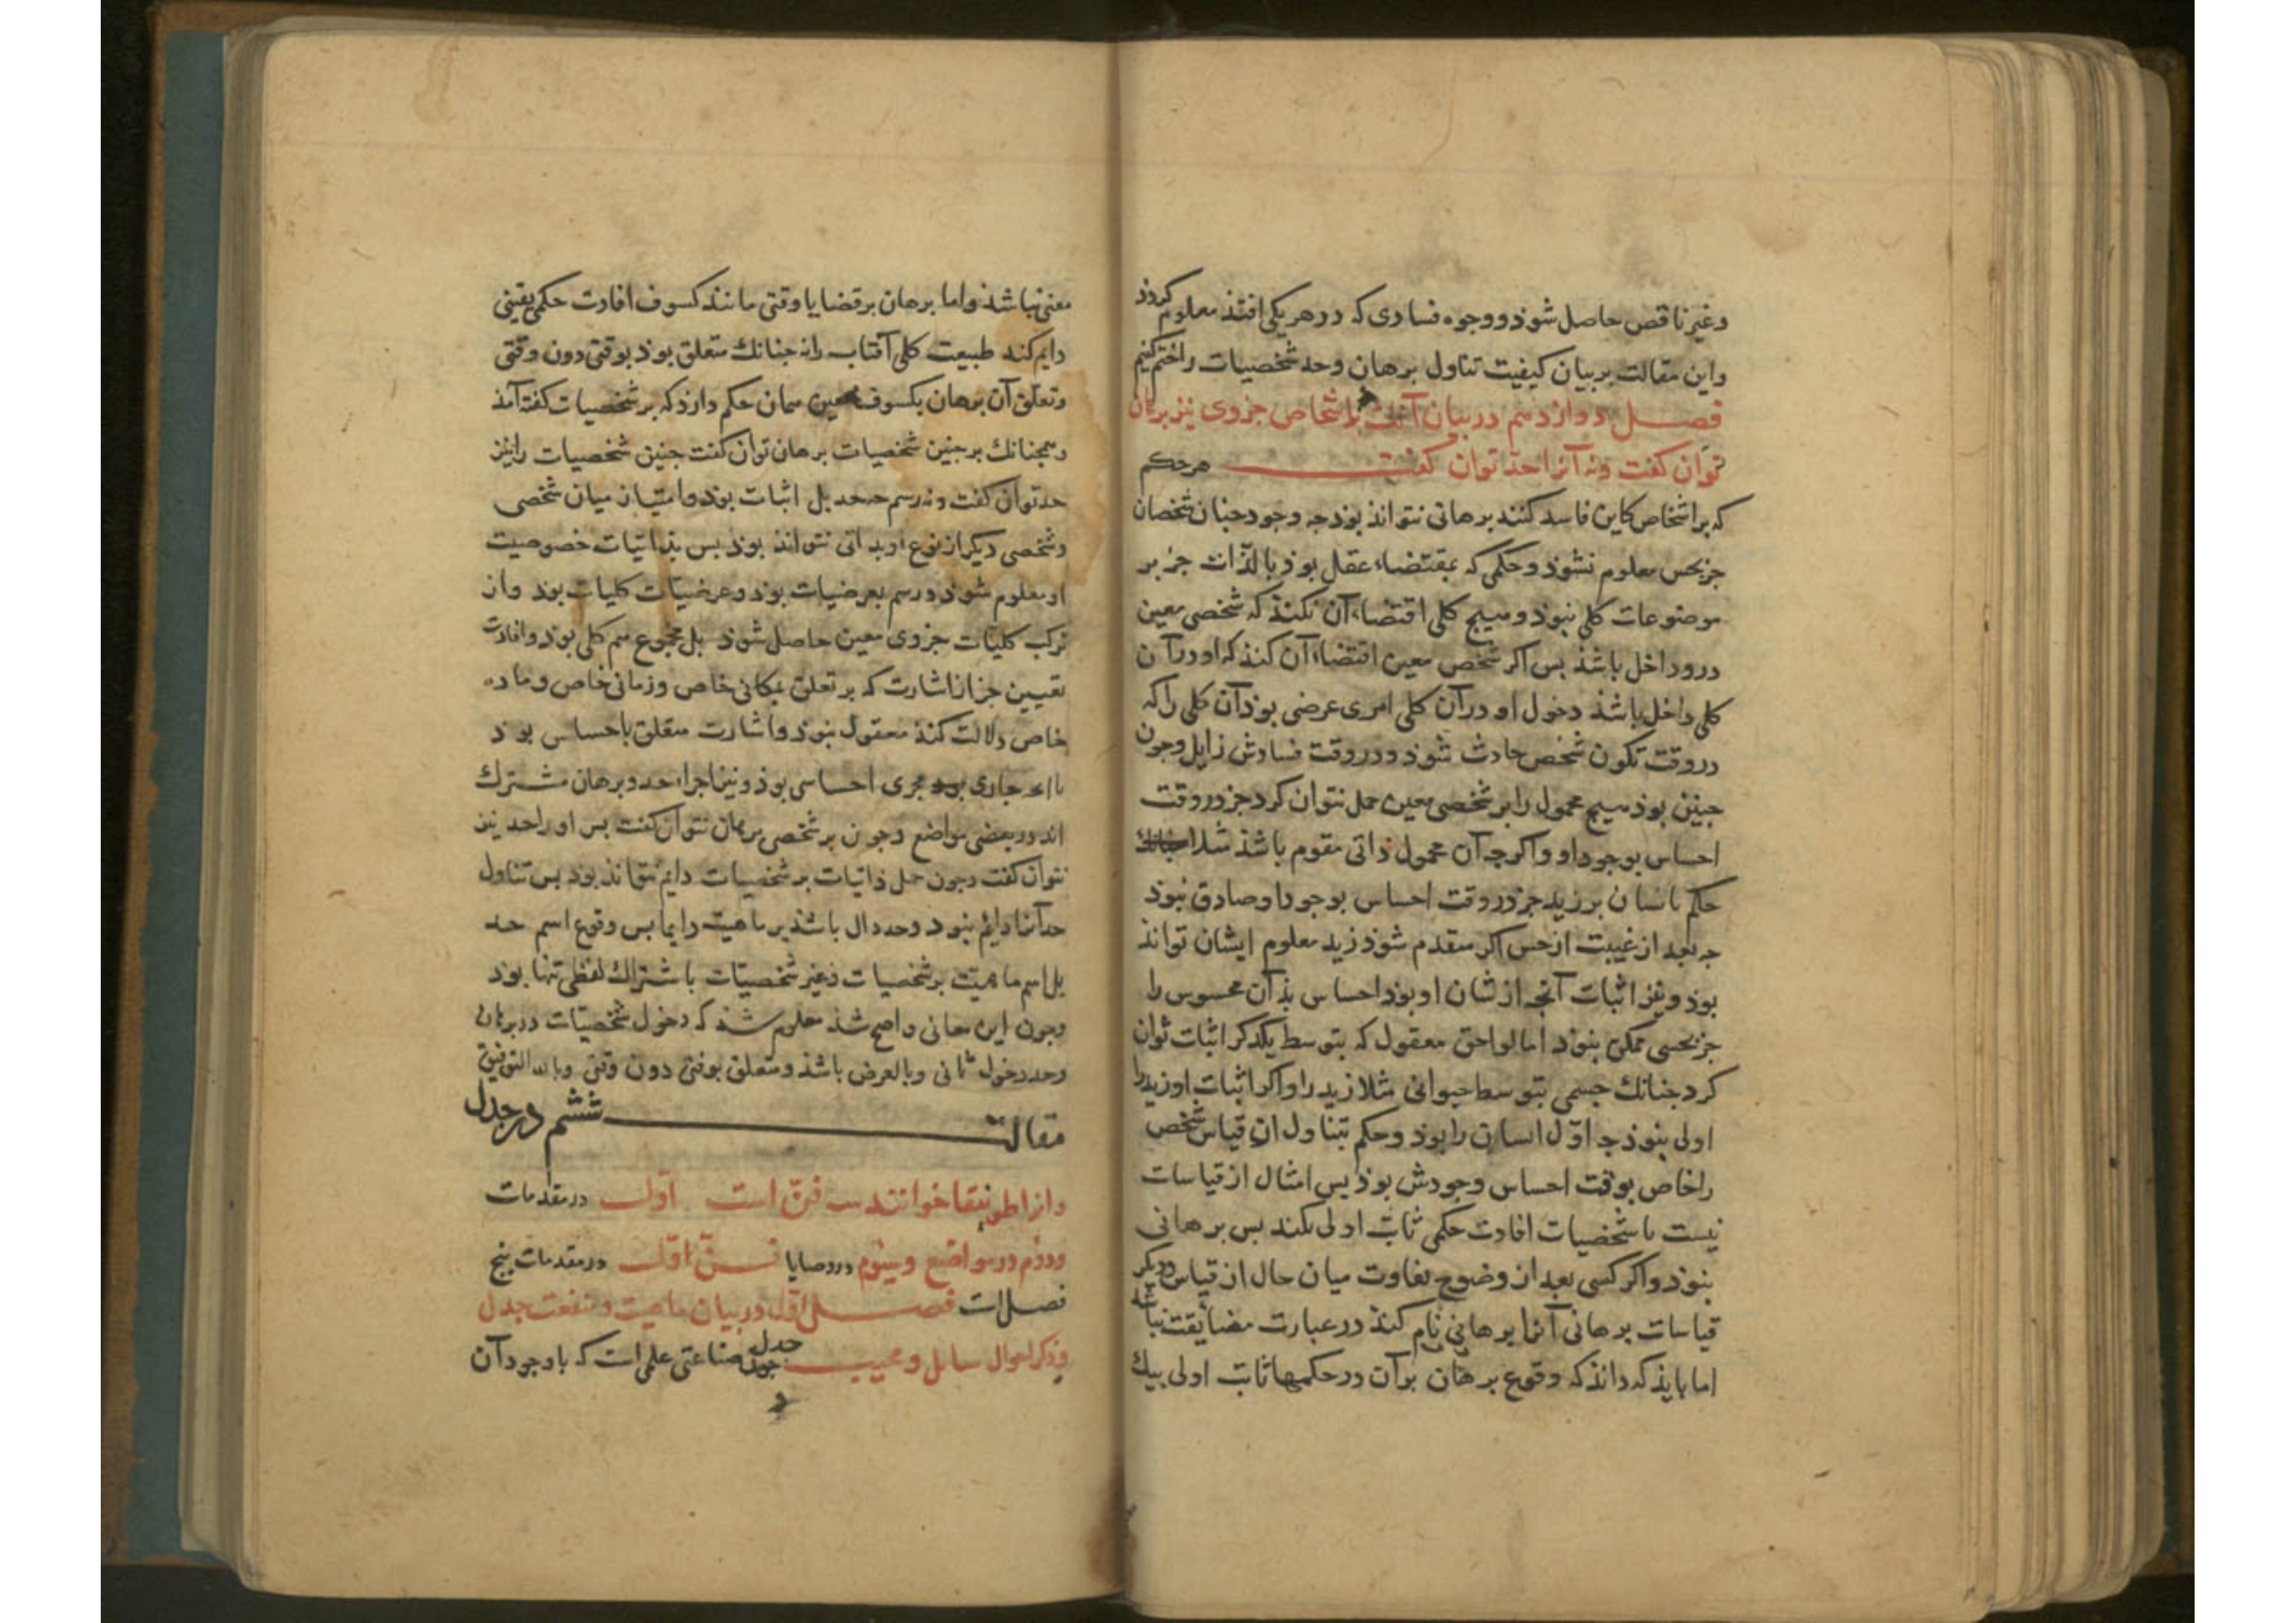 وغیر ناقص حاصل شوذ ووجوه فسادی که در هر یکی افتذ معلوم کردذ
واین مقالت بر بیان کیفیت تناول برهان وحد شخصیات را ختم کنیم
فصل دوازدهم در بیان آنک بر اشخاص جزوی نیز برهان
توان کفت ونه آنرا حد توان کفت هر حکم
که بر اشخاص کاین فاسد کنند برهانی نتواند بوذ جه وجود جنان شخصان
جز بحس معلوم نشوذ وحکمی که بمقتضاء عقل بوذ بالذات جز بر
موضوعات کلی نبوذ وهیج کلی اقتضاء آن نکنذ که شخصی معین
درو داخل باشذ بس اکر شخص معین اقتضاء آن کنذ که او در آن
کلی داخل باشذ دخول او در آن کلی امری عرضی بوذ آن کلی را که
در وقت تکون شخص حادث شوذ ودر وقت فسادش زایل وجون
جنین بوذ هیج محمول را بر شخصی معین حمل نتوان کرد جز در وقت
احساس بوجود او واکرجه آن محمول ذاتی مقوم باشذ مثلا جنانک
حکم بانسان بر زید جز در وقت احساس بوجود او صادق نبوذ
جه بعد از غیبت از حس اکر متقدم شوذ زید معلوم ایشان تواند
بوذ ونیز اثبات آنجه از شان او بوذ احساس بذان محسوس را
جز بحسی ممکن نبوذ اما لواحق معقول که بتوسط یکدکر اثبات توان
کرد جنانک جسمی بتوسط حیوانی مثلا زید را واکر اثبات او زید را
اولی نبوذ جه اول انسان را بوذ وحکم تناول ان قیاس شخص
را خاص بوقت احساس وجودش بوذ بس امثال از قیاسات
نیست با شخصیات افادت حکمی ثابت اولی نکند بس برهانی
نبوذ واکر کسی بعد از وضوح تفاوت میان حال از قیاس ودیکر
قیاسات برهانی آنرا برهانی نام کنذ در عبارت مضایقت نباشد
اما بایذ که دانذ که وقوع برهان بر آن در حکمها ثابت اولی بیک
معنی نباشذ واما برهان بر قضایا وقتی مانند کسوف افادت حکمی یقینی
دایم کند طبیعت کلی آفتاب را نه جنانک متعلق بوذ بوقتی دون وقتی
وتعلق آن برهان بکسوف معین همان حکم دارذ که بر شخصیات کفته آمذ
وهمجنانک بر جنین شخصیات برهان توان کفت جنین شخصیات را نیز
حد توان کفت ونه رسم جه حد بل اثبات بوذ وامتیاز میان شخصی
وشخصی دیکر از نوع او بذاتی نتواند بوذ بس بذاتیات خصوصیت
او معلوم شوذ ورسم بعرضیات بوذ وعرضیات کلیات بوذ واز
ترکب کلیات جزوی معین حاصل شوذ بل مجموع هم کلی بوذ وافادت
تعیین جز از اشارت که بر تعلق بمکانی خاص وزمانی خاص وماده
خاص دلالت کنذ معقول نبوذ واشارت متعلق باحساس بوذ
جاری مجری احساسی بوذ ونیز اجزاء حد وبرهان مشترک
اند در بعضی مواضع وجون بر شخصی برهان نتوان کفت بس او را حد نیز
نتوان کفت وجون حمل ذاتیات بر شخصیات دایم نتواند بوذ بس تناول
حد آنرا دایم نبوذ وحد دال باشذ بر ماهیت دایما بس وقوع اسم حد
بل اسم ماهیت بر شخصیات وغیر شخصیات باشتراک لفظی تنها بوذ
وجون این معانی واضح شذ معلوم شذ که دخول شخصیات در برهان
وحد دخول ثانی وبالعرض باشذ ومتعلق بوقتی دون وقتی وبالله التوفیق
مقالت ششم در جدل
وانرا طوبیقا خوانند سه فن است اول در مقدمات
ودوم در مواضع وسیوم در وصایا فن اول در مقدمات بنج
فصل است فصل اول در بیان ماهیت ومنفعت جدل
وذکر احوال سایل ومجیب جدل صناعتی علمی است که با وجود آن